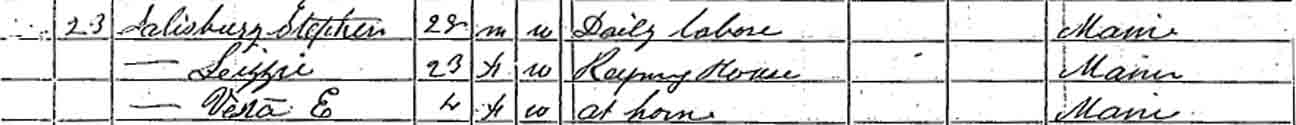 23 Salisbury Stephen 28 m w Daily labore Maine
— Lizzie 23 f w Keping House Maine
— Vesta E 4 f w at home Maine